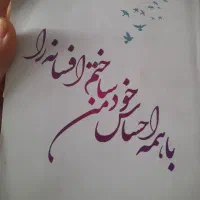 با همه احساس خود من
ساختم افسانه را